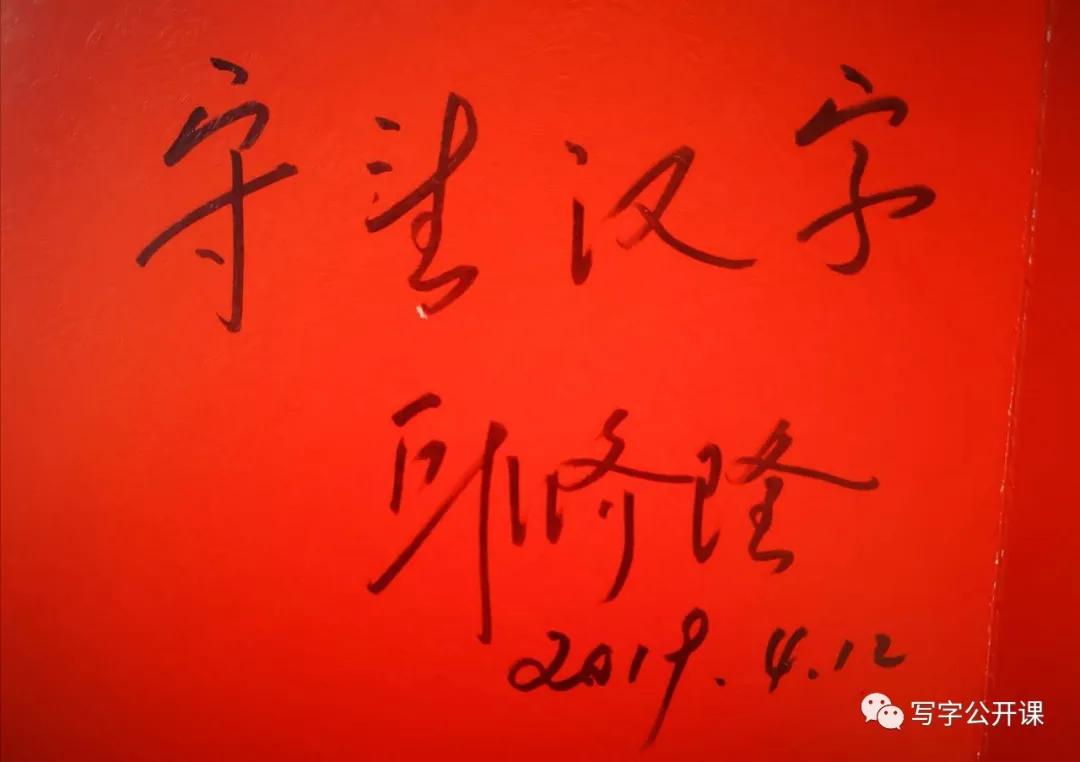 守望汉字
修隆
2019.4.12
写字公开课